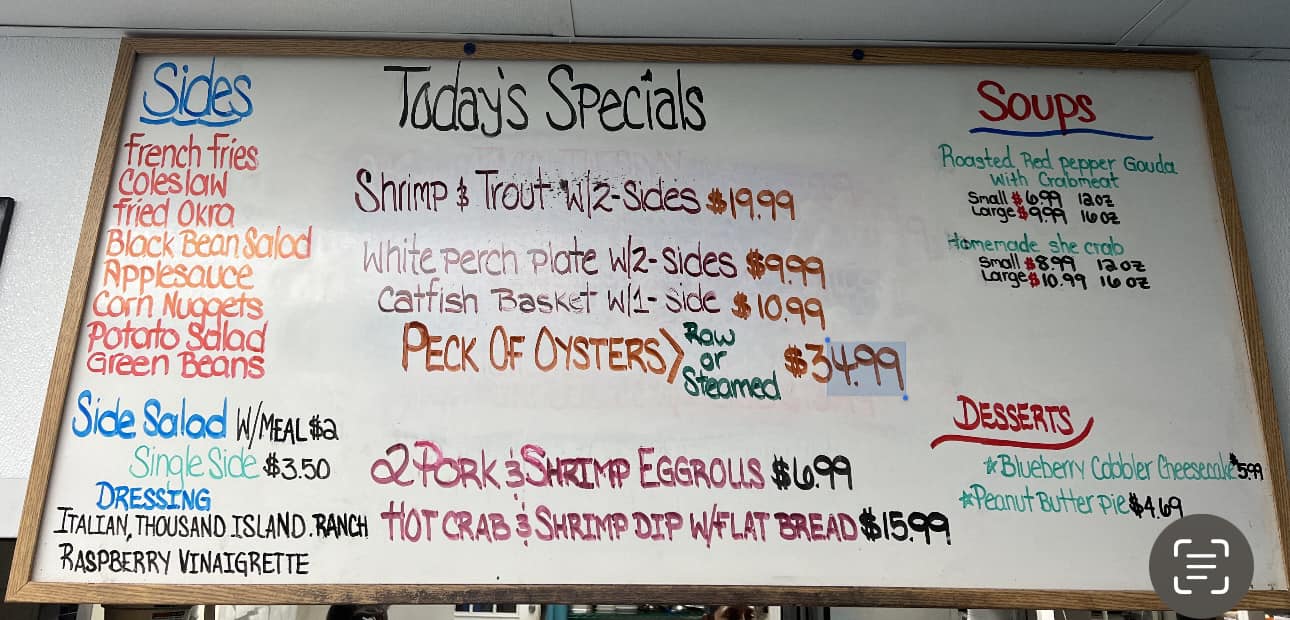 Sides
French Fries
Coleslaw
Fried Okra
Black Bean Salad
Applesauce
Corn Nuggets
Potato Salad
Green Beans
Side Salad W/MEAL $2
Single Side $3.50
DRESSING
ITALIAN, THOUSAND ISLAND. RANCH
RASPBERRY VINAIGRETTE
Today's Specials
Shrimp & Trout W/2-Sides $19.99
White Perch Plate W/2-Sides $9.99
Catfish Basket W/1-Side $10.99
PECK OF OYSTERS> Raw or Steamed $34.99
2 PORK & SHRIMP EGGROLLS $6.99
HOT CRAB & SHRIMP DIP W/FLAT BREAD $15.99
Soups
Roasted Red pepper Gouda
With Crabmeat
Small $6.99 12oz
Large $9.99 16oz
Homemade she crab
Small $8.99 12oz
Large $10.99 16oz
DESSERTS
*Blueberry Cobbler Cheesecake $5.99
*Peanut Butter Pie $4.69